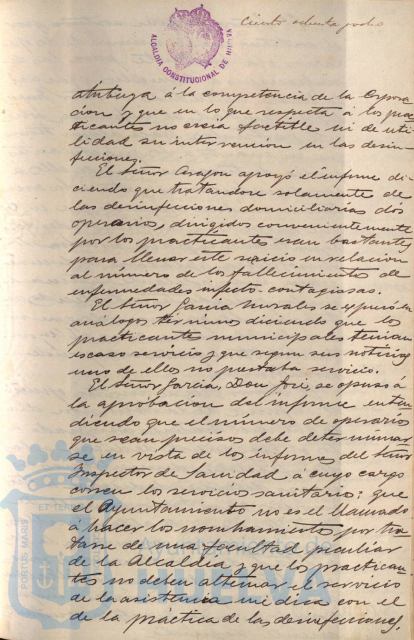 Ciento ochenta y ocho
ALCALDIA CONSTITUCIONAL DE HUELVA
atribuya á la competencia de la Corpora
cion y que en lo que respecta á los prac
ticantes no creia factible ni de uti
lidad su intervencion en las desin
fecciones.
El Señor Aragon apoyó el informe di
ciendo que tratandose solamente de
las desinfecciones domiciliarias dos
operarios, dirigidos convenientemente
por los practicantes eran bastantes
para llenar este servicio en relacion
al número de los fallecimientos de
enfermedades infecto-contagiosas.
El Señor Garcia Morales se expresó en
análogos términos diciendo que los
practicantes municipales tenian
escaso servicio y que segun sus noticias
uno de ellos no prestaba servicio.
El Señor Garcia, Don José, se opuso á
la aprobacion del informe enten
diendo que el número de operarios
que sean precisos debe determinar
se en vista de los informes del Señor
Inspector de Sanidad á cuyo cargo
corren los servicios sanitarios: que
el Ayuntamiento no es el llamado
á hacer los nombramientos por tra
tarse de una facultad peculiar
de la Alcaldia y que los practican
tes no deben alternar el servicio
de la asistencia médica con el
de la práctica de las desinfecciones.
PORTUS MARIS ET TERRAE
Ayuntamiento de
HUELVA